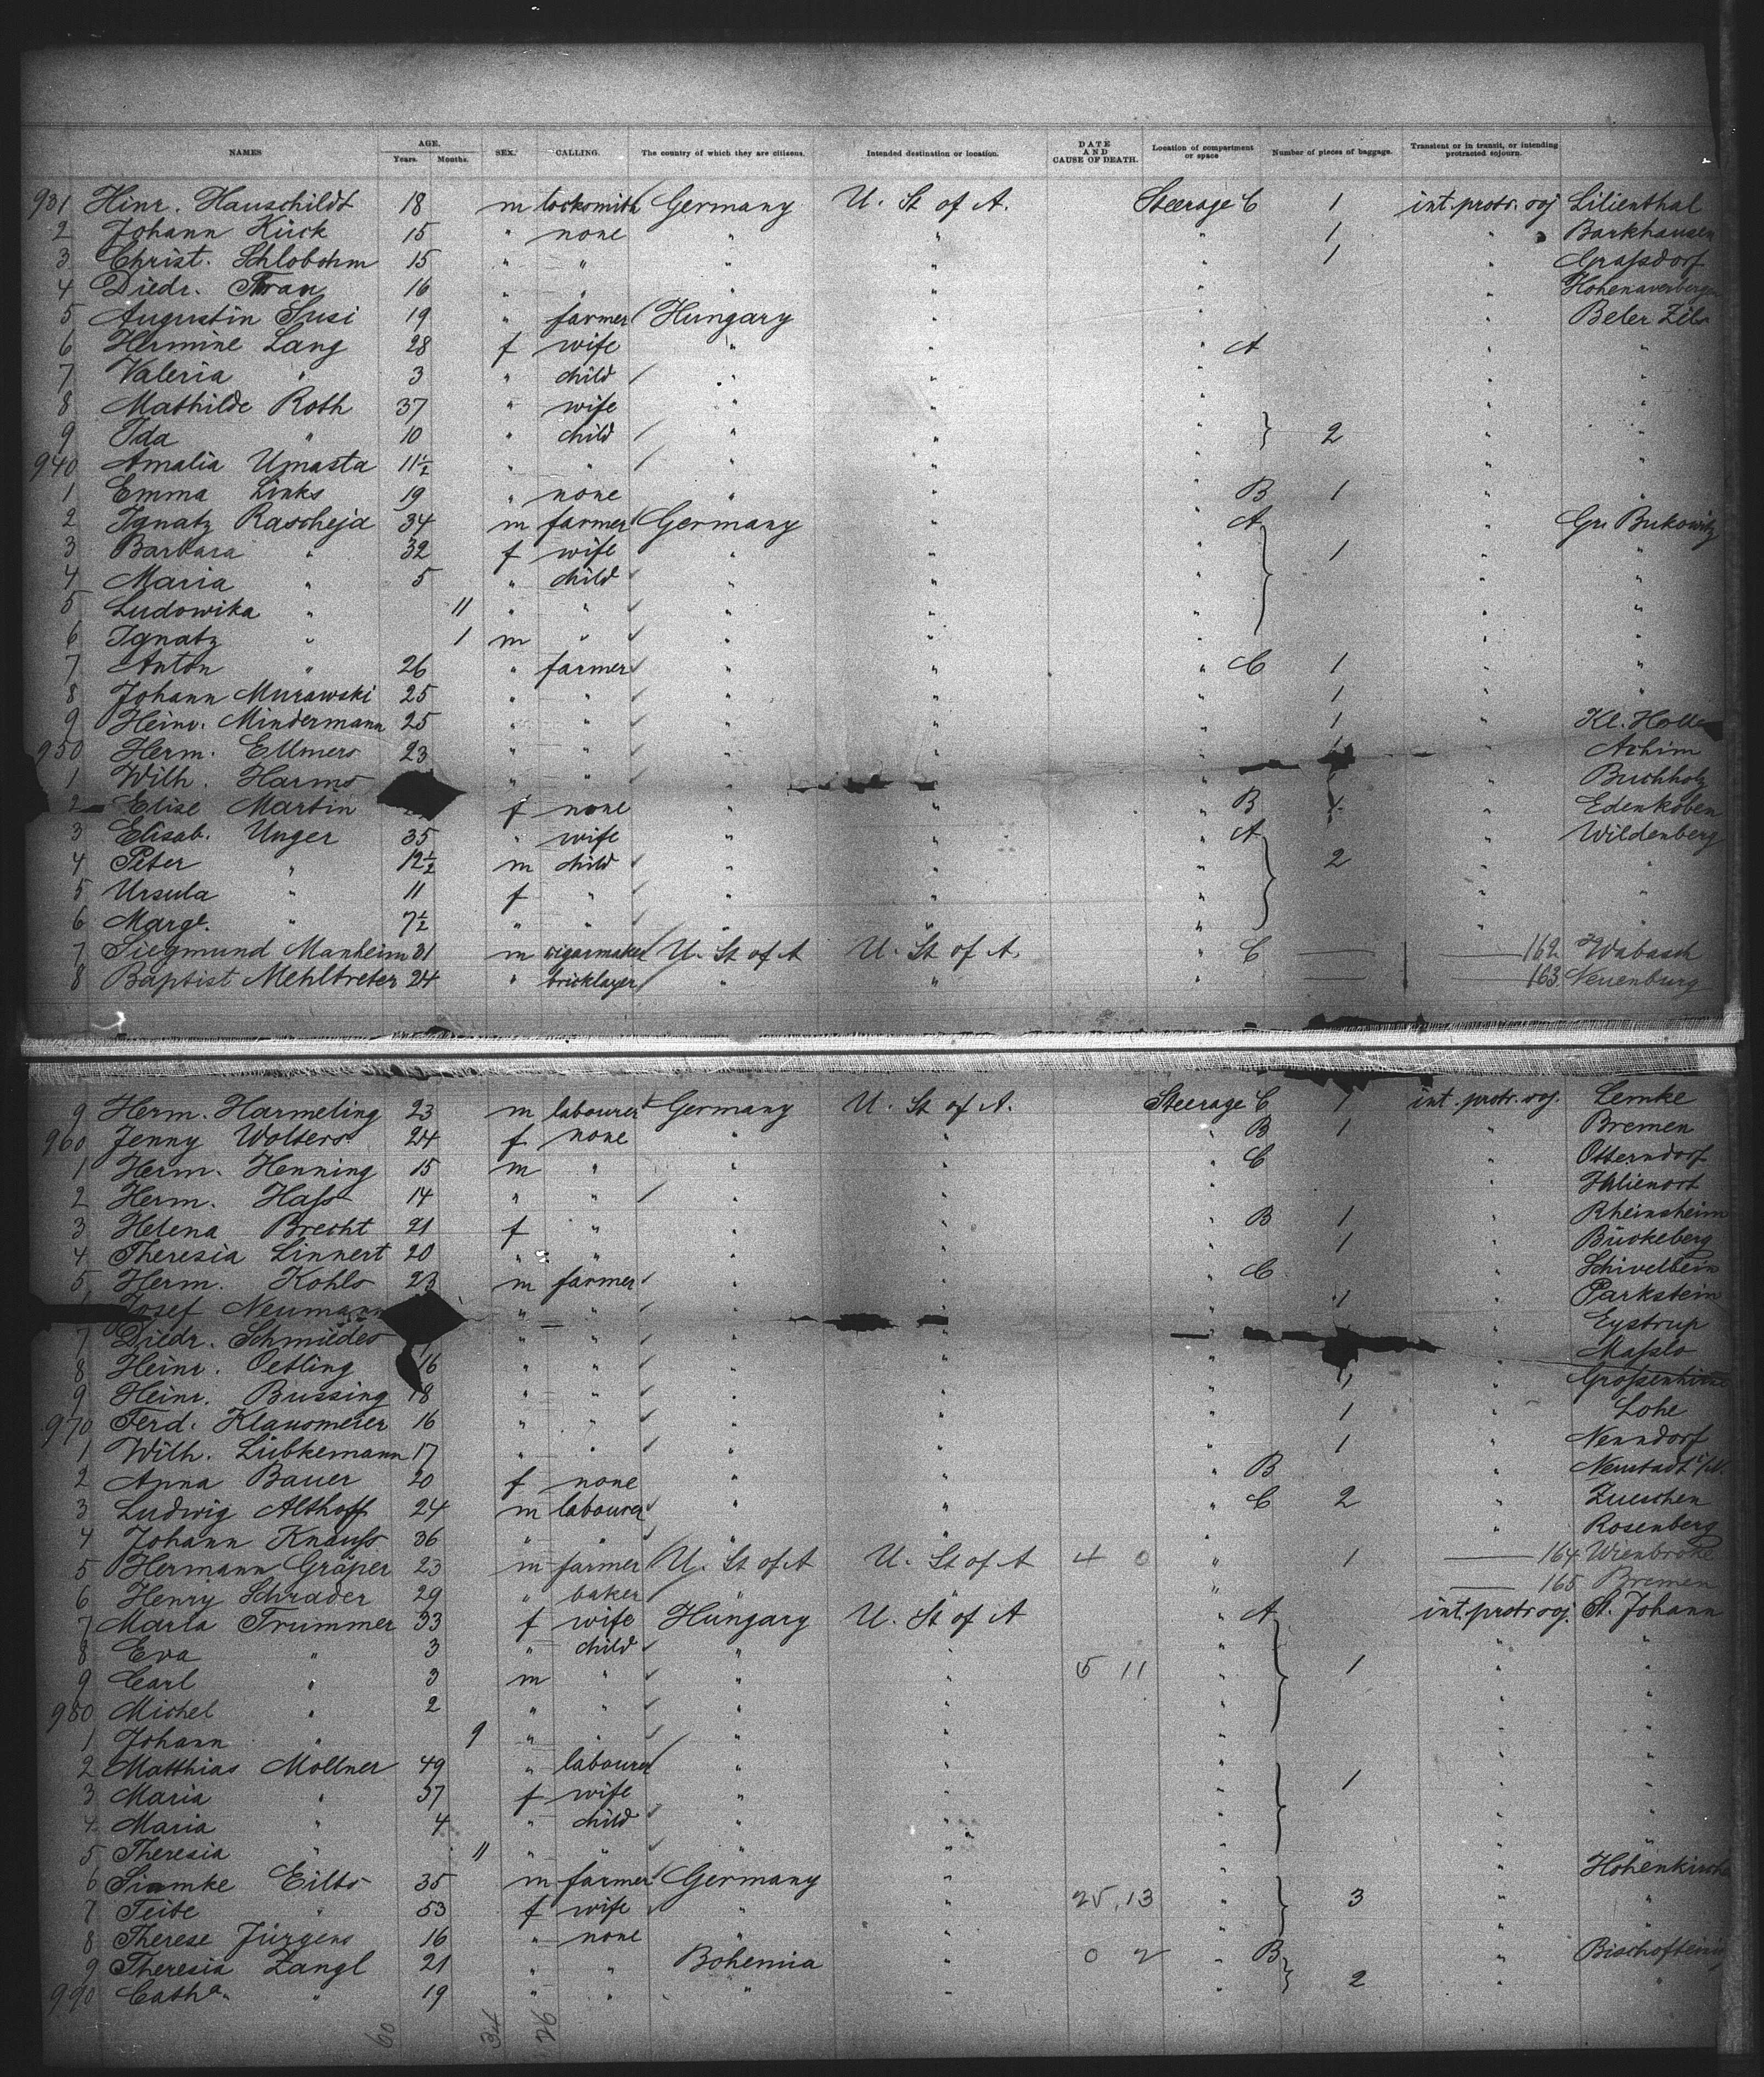 NAMES AGE. Years. Months. SEX. CALLING. The country of which they are citizens. Intended destination or location. DATE AND CAUSE OF DEATH. Location of compartment or space Number of pieces of baggage. Transient or in transit, or intending protracted sojourn.
931 Hinr. Hauschildt 18 m locksmith Germany U. St of A. Steerage C 1 int. protr. soj Lilienthal
2 Johann Kück 15 " none " " " 1 " Barkhausen
3 Christ. Schlobohm 15 " " " " " 1 " Grassdorf
4 Diedr. 16 " " " " " "
5 Augustin Susi 19 " farmer Hungary " " "
6 Hermine Lang 28 f wife " " " A " "
7 Valeria " 3 " child " " " " "
8 Mathilde Roth 37 " wife " " " " "
9 Ida " 10 " child " " " 2 " "
940 Amalia Umasta 11½ " " " " " " "
1 Emma Links 19 " none " " " B 1 " "
2 Ignatz Rascheja 34 m farmer Germany " " A " Gr. Bukowitz
3 Barbara " 32 f wife " " " 1 " "
4 Maria " 5 " child " " " " "
5 Ludowika " 11 " " " " " " "
6 Ignatz " 1 m " " " " " "
7 Anton " 26 " farmer " " " C 1 " "
8 Johann Murawski 25 " " " " " 1 " "
9 Heinr. Mindermann 25 " " " " " 1 " Kl. Holle
950 Herm. Ellmers 23 " " " " " 1 " Achim
1 Wilh. Harms " " " " " " Buchholz
2 Elise Martin f none " " " B 1 " Edenkoben
3 Elisab. Unger 35 " wife " " " A " Wildenberg
4 Peter " 12½ m child " " " 2 " "
5 Ursula " 11 f " " " " " "
6 Margt. " 7½ " " " " " " "
7 Siegmund Manheim 31 m cigarmaker U. St of A U. St of A. " C — — 162 Wabasch
8 Baptist Mehltreter 24 " bricklayer " " " — — 163 Neuenburg
9 Herm. Harmeling 23 m labourer Germany U. St of A. Steerage C 1 int. protr. soj. Lemke
960 Jenny Wolters 24 f none " " " B 1 " Bremen
1 Herm. Henning 15 m " " " " C " Otterndorf
2 Herm. Hass 14 " " " " " "
3 Helena Brecht 21 f " " " " B 1 " Rheinsheim
4 Theresia Linnert 20 " " " " " 1 " Bückeberg
5 Herm. Kohls 23 m farmer " " " C " Schivelbein
Josef Neumann " " " " " 1 " Parkstein
7 Diedr. Schmiedes " " " " " " Eystrup
8 Heinr. Oetling 16 " " " " " " Masslo
9 Heinr. Bussing 18 " " " " " 1 "
970 Ferd. Klausmeier 16 " " " " " 1 " Lohe
1 Wilh. Lübkemann 17 " " " " " 1 " Nenndorf
2 Anna Bauer 20 f none " " " B " Neustadt
3 Ludwig Althoff 24 m labourer " " " C 2 " Zueschen
4 Johann Knauss 36 " " " " " " Rosenberg
5 Hermann Gräper 23 m farmer U. St of A U. St of A 4 0 " 1 — 164 Wienbroke
6 Henry Schrader 29 " baker " " " — 165 Bremen
7 Maria Trummer 33 f wife Hungary U. St of A " A int. protr. soj. St. Johann
8 Eva " 3 " child " " " " "
9 Carl " 3 m " " " 5 11 " 1 " "
980 Michel " 2 " " " " " " "
1 Johann " 9 " " " " " " "
2 Matthias Mollner 49 " labourer " " " " "
3 Maria " 37 f wife " " " 1 " "
4 Maria " 4 " child " " " " "
5 Theresia " 11 " " " " " " "
6 Siemke Eilts 35 m farmer Germany " " " Hohenkirchen
7 Teite " 53 f wife " " 25, 13 " 3 " "
8 Therese Jürgens 16 " none " " " " "
9 Theresia Zangl 21 " " Bohemia " 0 2 " B "
990 Catha. " 19 " " " " " 2 " "
60 34 26